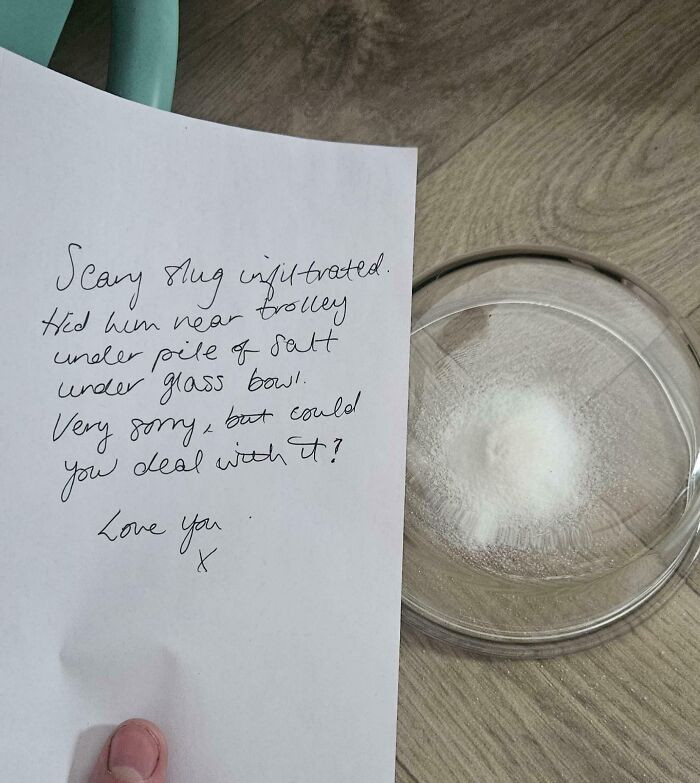 Scary slug infiltrated.
Hid him near trolley
under pile of salt
under glass bowl.
Very sorry, but could
you deal with it?
Love you
X